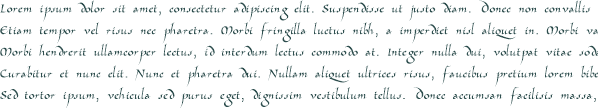 Lorem ipsum dolor sit amet, consectetur adipiscing elit. Suspendisse ut justo diam. Donec non convallis
Etiam tempor vel risus nec pharetra. Morbi fringilla luctus nibh, a imperdiet nisl aliquet in. Morbi va
Morbi hendrerit ullamcorper lectus, id interdum lectus commodo at. Integer nulla dui, volutpat vitae soda
Curabitur et nunc elit. Nunc et pharetra dui. Nullam aliquet ultrices risus, faucibus pretium lorem bibe
Sed tortor ipsum, vehicula sed purus eget, dignissim vestibulum tellus. Donec accumsan facilisis massa,